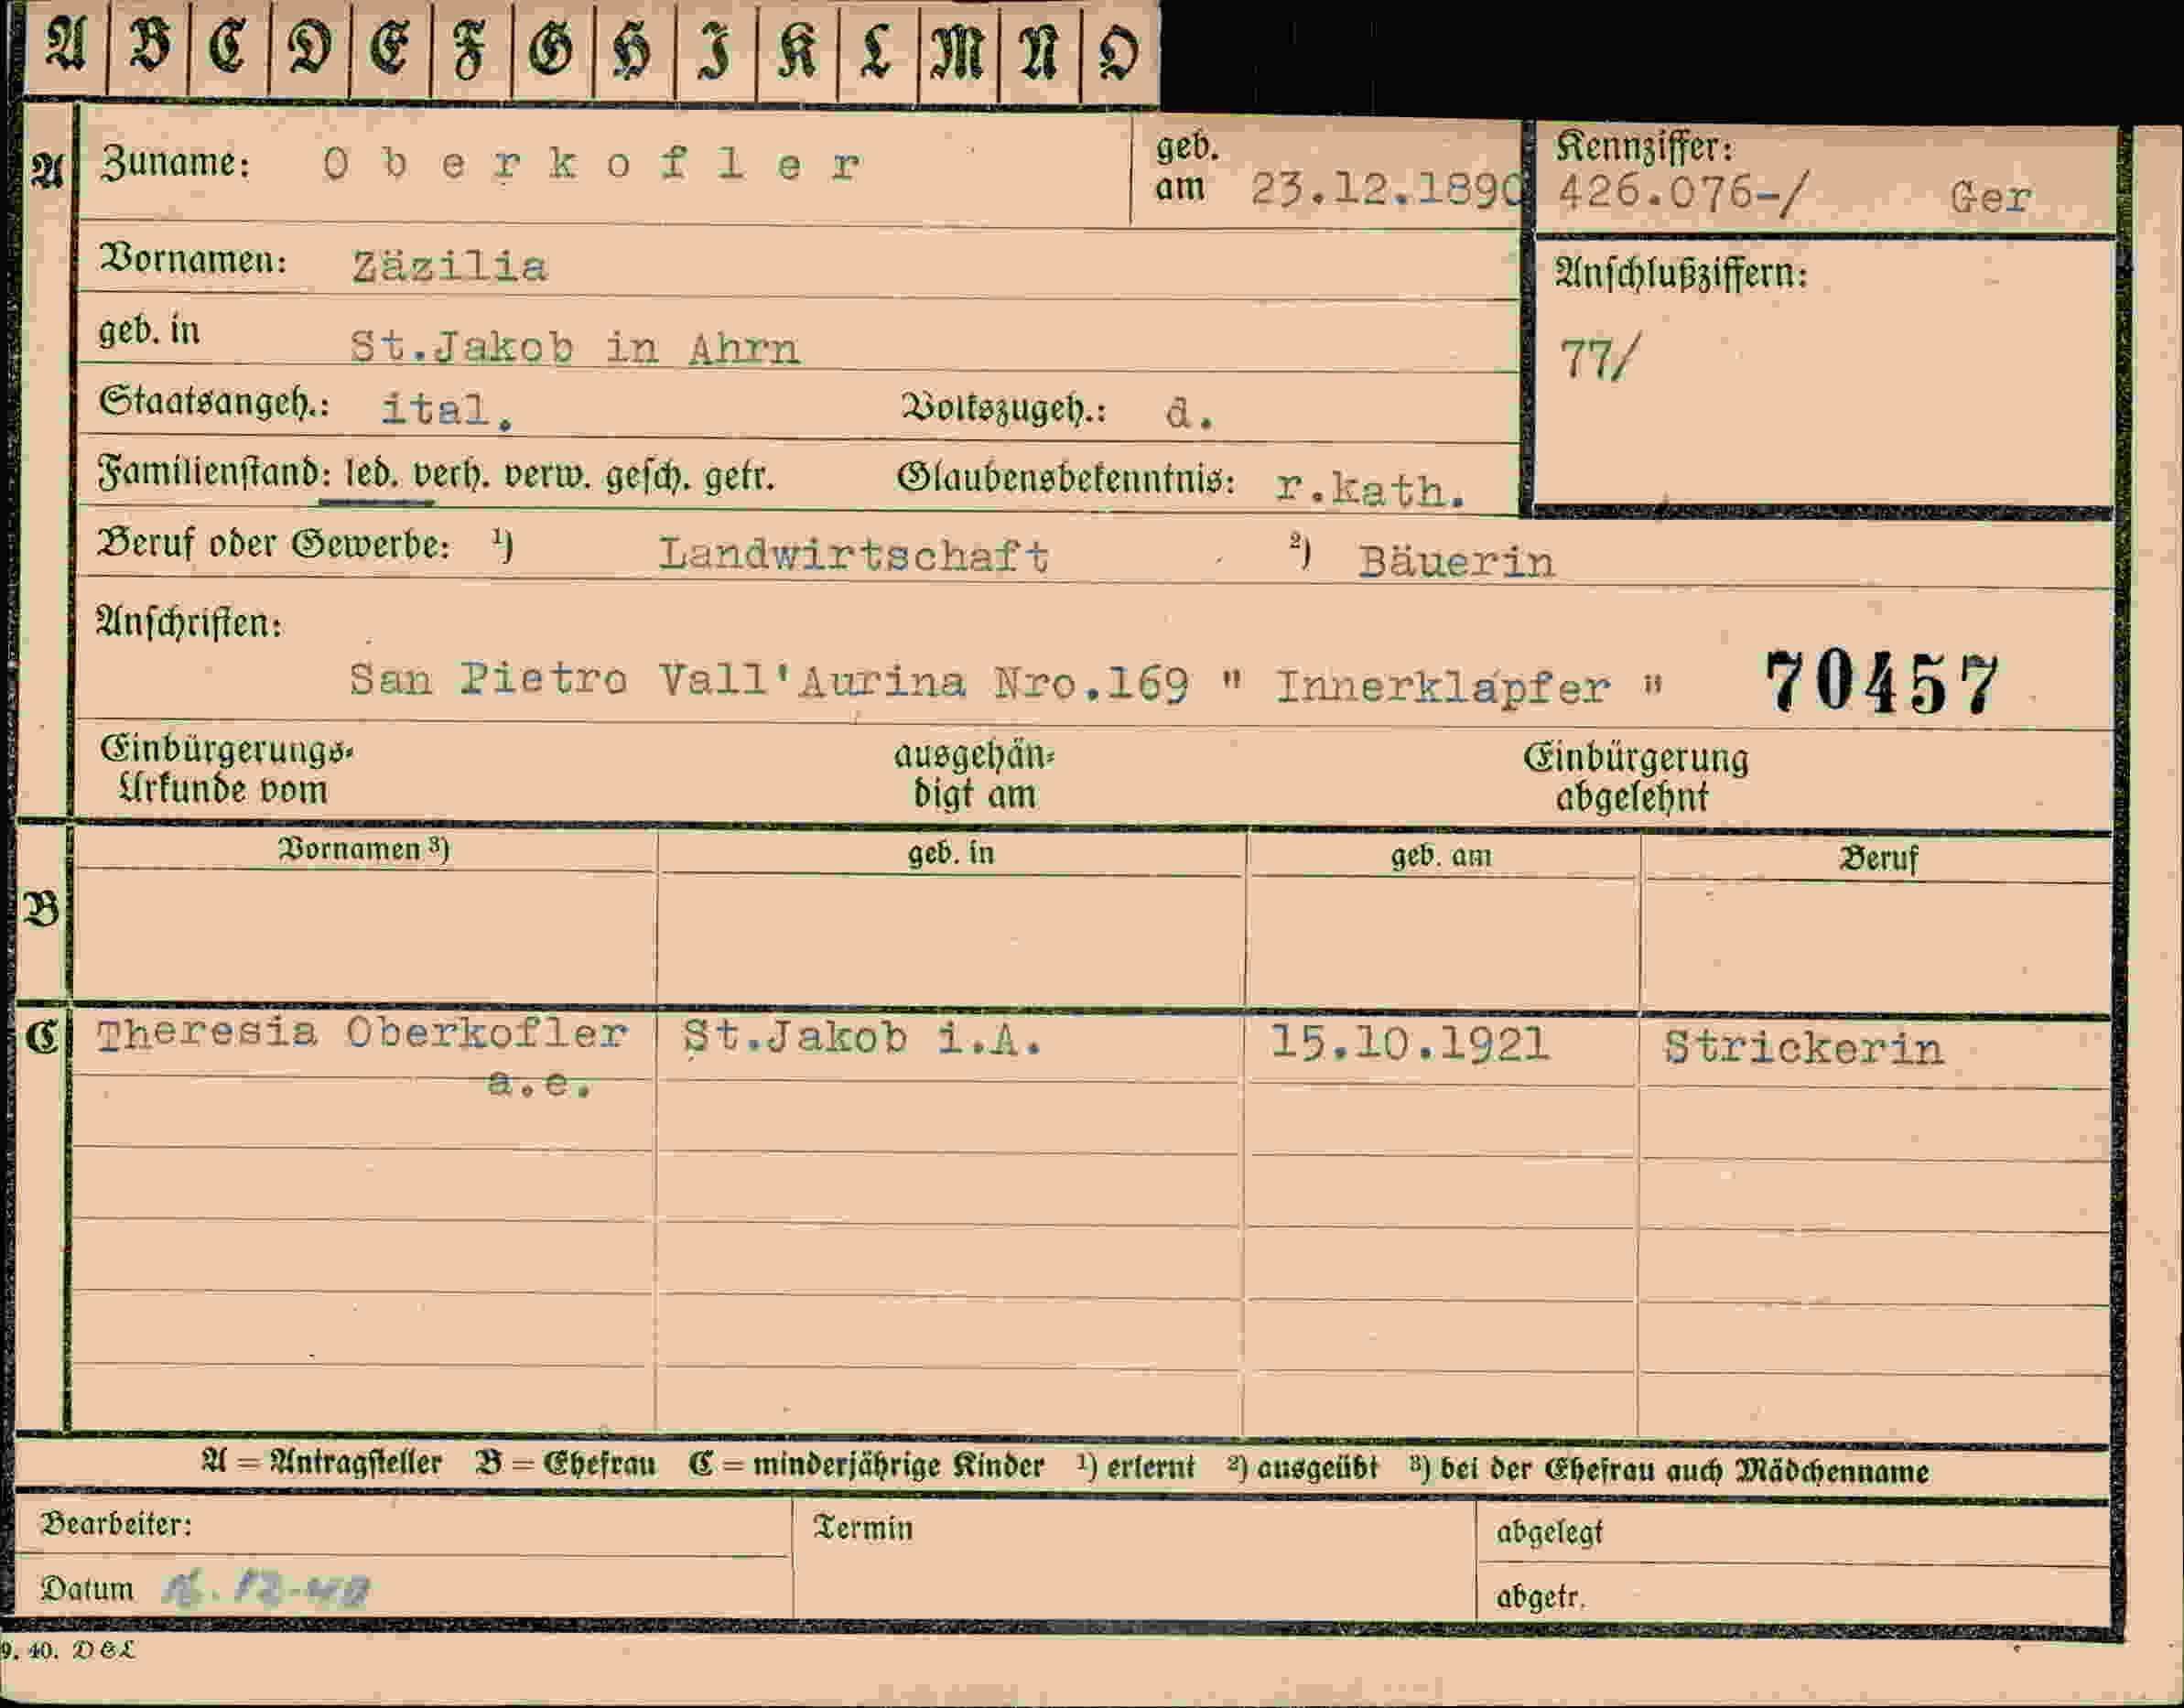 A B C D E F G H I K L M N O
A Zuname: Oberkofler geb. am 23.12.1890 Kennziffer: 426.076-/ Ger
Vornamen: Zäzilia Anschlußziffern:
geb. in St.Jakob in Ahrn 77/
Staatsangeh.: ital. Volkszugeh.: d.
Familienstand: led. verh. verw. gesch. getr. Glaubensbekenntnis: r.kath.
Beruf oder Gewerbe: ¹) Landwirtschaft ²) Bäuerin
Anschriften:
San Pietro Vall'Aurina Nro.169 " Innerklapfer " 70457
Einbürgerungs- ausgehän- Einbürgerung
Urkunde vom digt am abgelehnt
Vornamen ³) geb. in geb. am Beruf
B
C Theresia Oberkofler St.Jakob i.A. 15.10.1921 Strickerin
a.e.
A = Antragsteller B = Ehefrau C = minderjährige Kinder ¹) erlernt ²) ausgeübt ³) bei der Ehefrau auch Mädchenname
Bearbeiter: Termin abgelegt
Datum abgetr.
9. 40. D&L